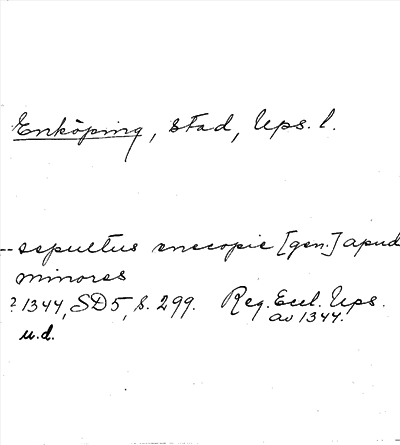 Enköping, stad, Ups. l.
-- sepultus enecopie [gen.] apud
minores
? 1344, SD 5, s. 299. Reg. Eccl. Ups.
av 1344.
u.d.